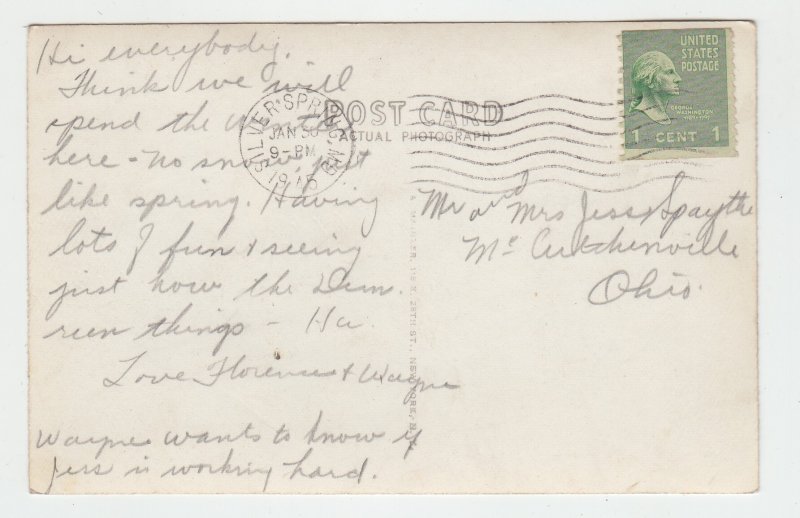 Hi everybody,
Think we will
spend the winter
here - no snow, just
like spring. Having
lots of fun & seeing
just how the Dem.
run things - Ha
Love Florence & Wayne
Wayne wants to know if
Jess is working hard.
SILVER SPRING, MD.
JAN 30
9 - PM
1945
POST CARD
ACTUAL PHOTOGRAPH
UNITED
STATES
POSTAGE
GEORGE
WASHINGTON
1789-1797
1 CENT 1
Mr and Mrs Jess Spaythe
Mc Cutchenville
Ohio.
28TH ST., NEW YORK, N.Y.